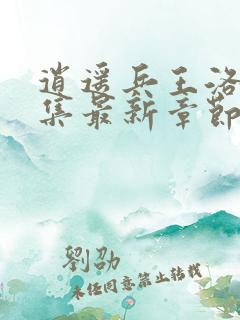 逍遥兵王洛
集最新章節
劉劭
未经同意禁止转载